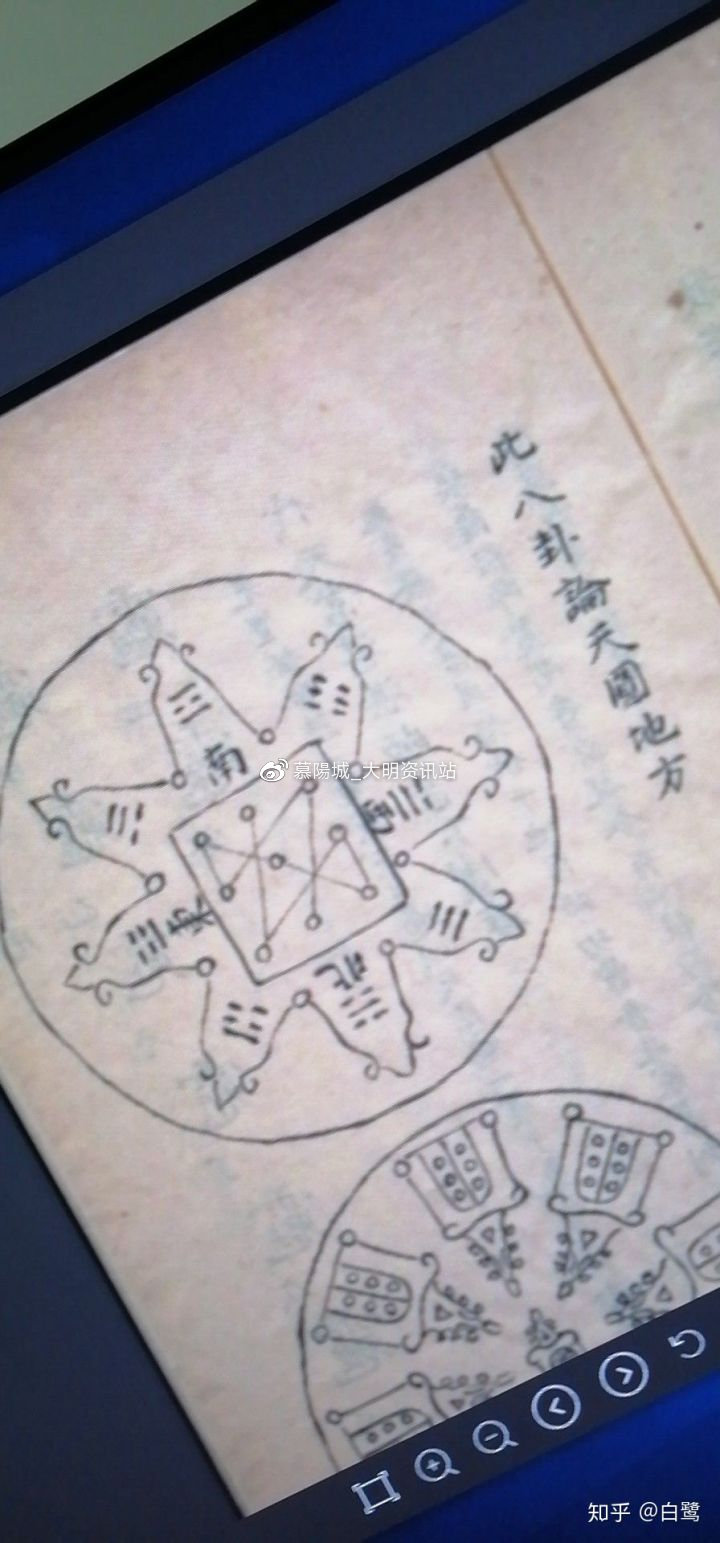 此八卦論天圓地方
南
西
東
北
慕陽城_大明资讯站
知乎 @白鹭